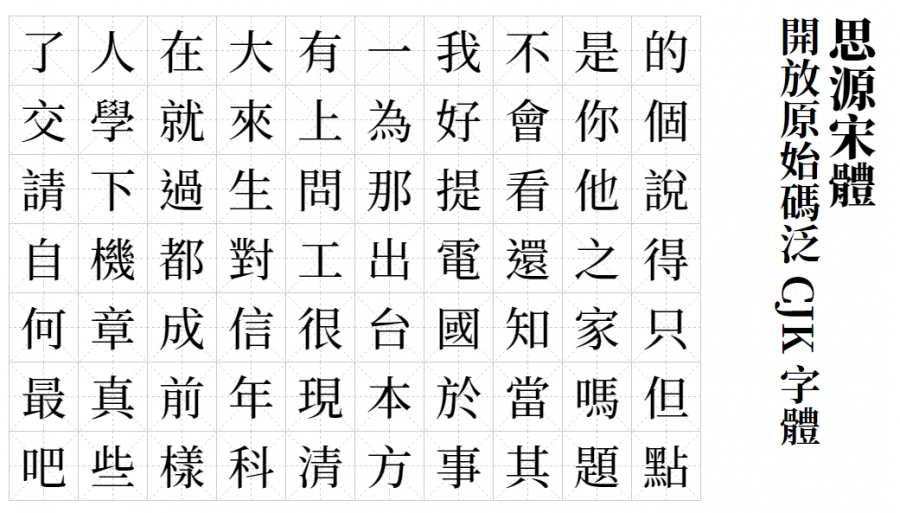 思源宋體
開放原始碼泛 CJK 字體
的是不我一有大在人了
個你會好為上來就學交
說他看提那問生過下請
得之還電出工對都機自
只家知國台很信成章何
但嗎當於本現年前真最
點題其事方清科樣些吧